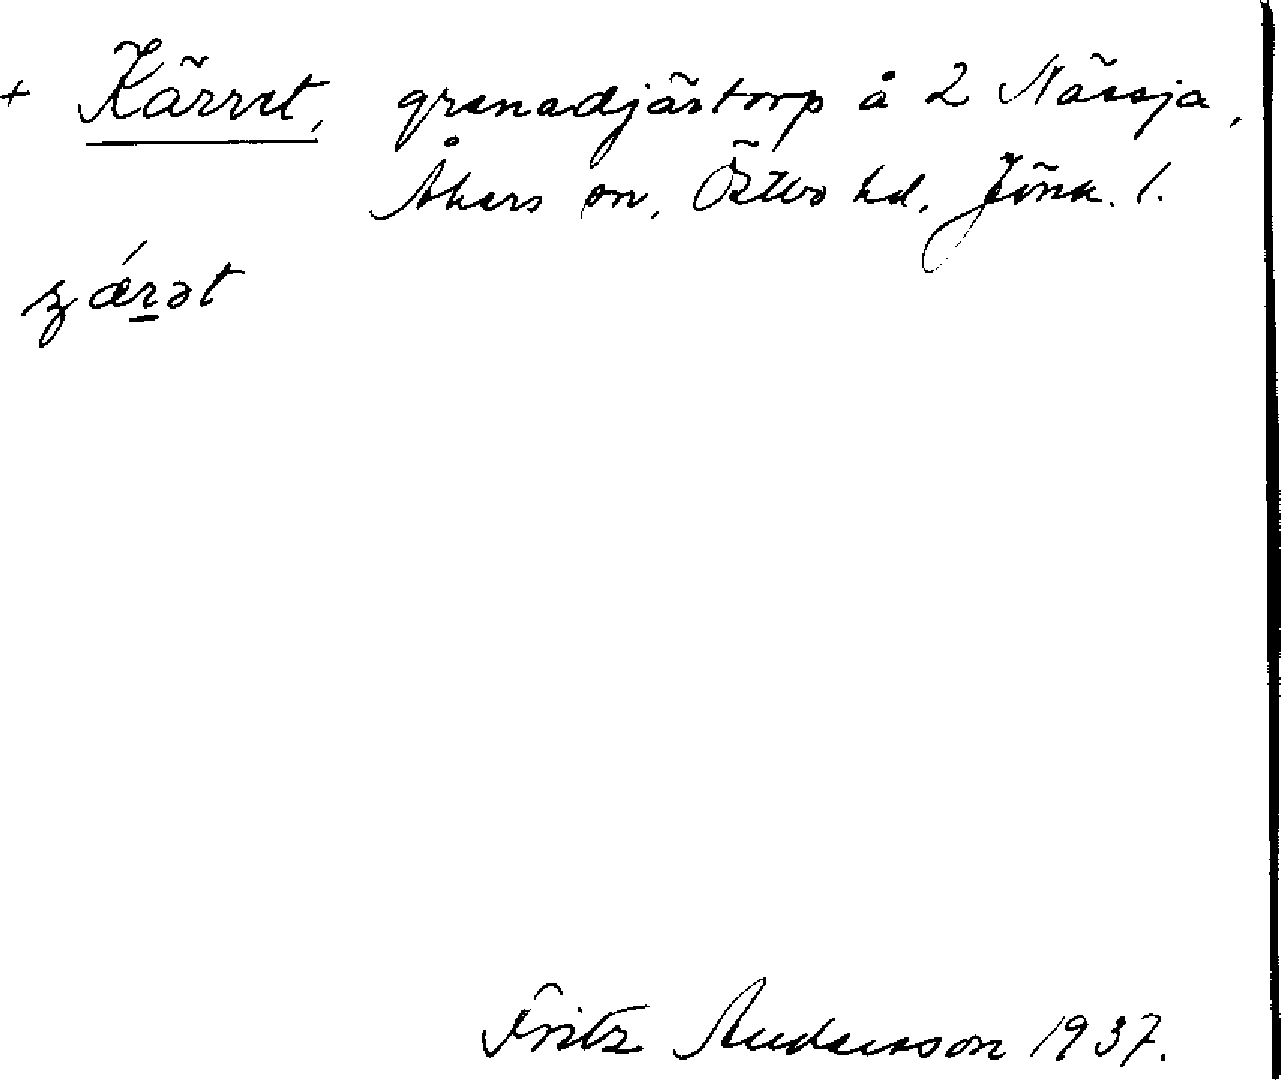 + Kärret, grenadjästorp å 2 Nässja,
Åkers sn, Östbo hd, Jönk. l.
ʂǽrət
Fritz Andersson 1937.